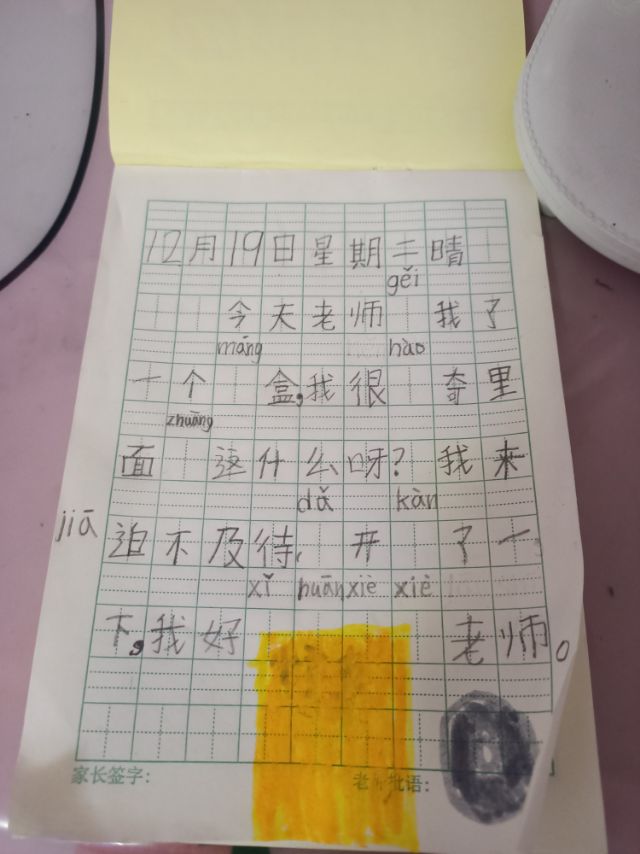 12月19日星期二晴
gěi
今天老师 我了
māng hào
一个 盒,我很 奇里
zhuāng
面 这什么呀?我来
dǎ kàn
jiā
迫不及待, 开了一
xǐ huān xiè xiè
下,我好 老师。
家长签字: 老师批语: